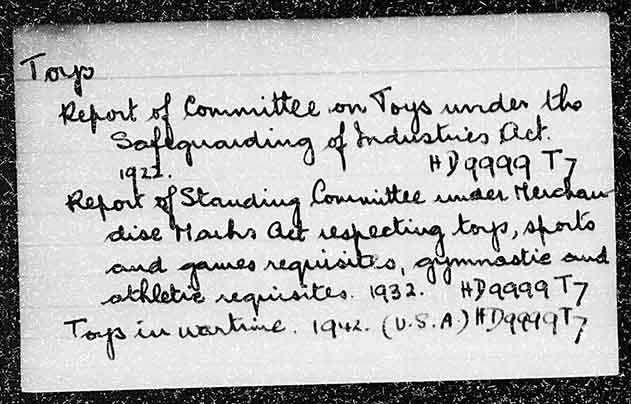 Toys
Report of Committee on Toys under the
Safeguarding of Industries Act.
1922. HD9999 T7
Report of Standing Committee under Merchan-
dise Marks Act respecting toys, sports
and games requisites, gymnastic and
athletic requisites. 1932. HD9999 T7
Toys in wartime. 1942. (U.S.A.) HD9999 T7